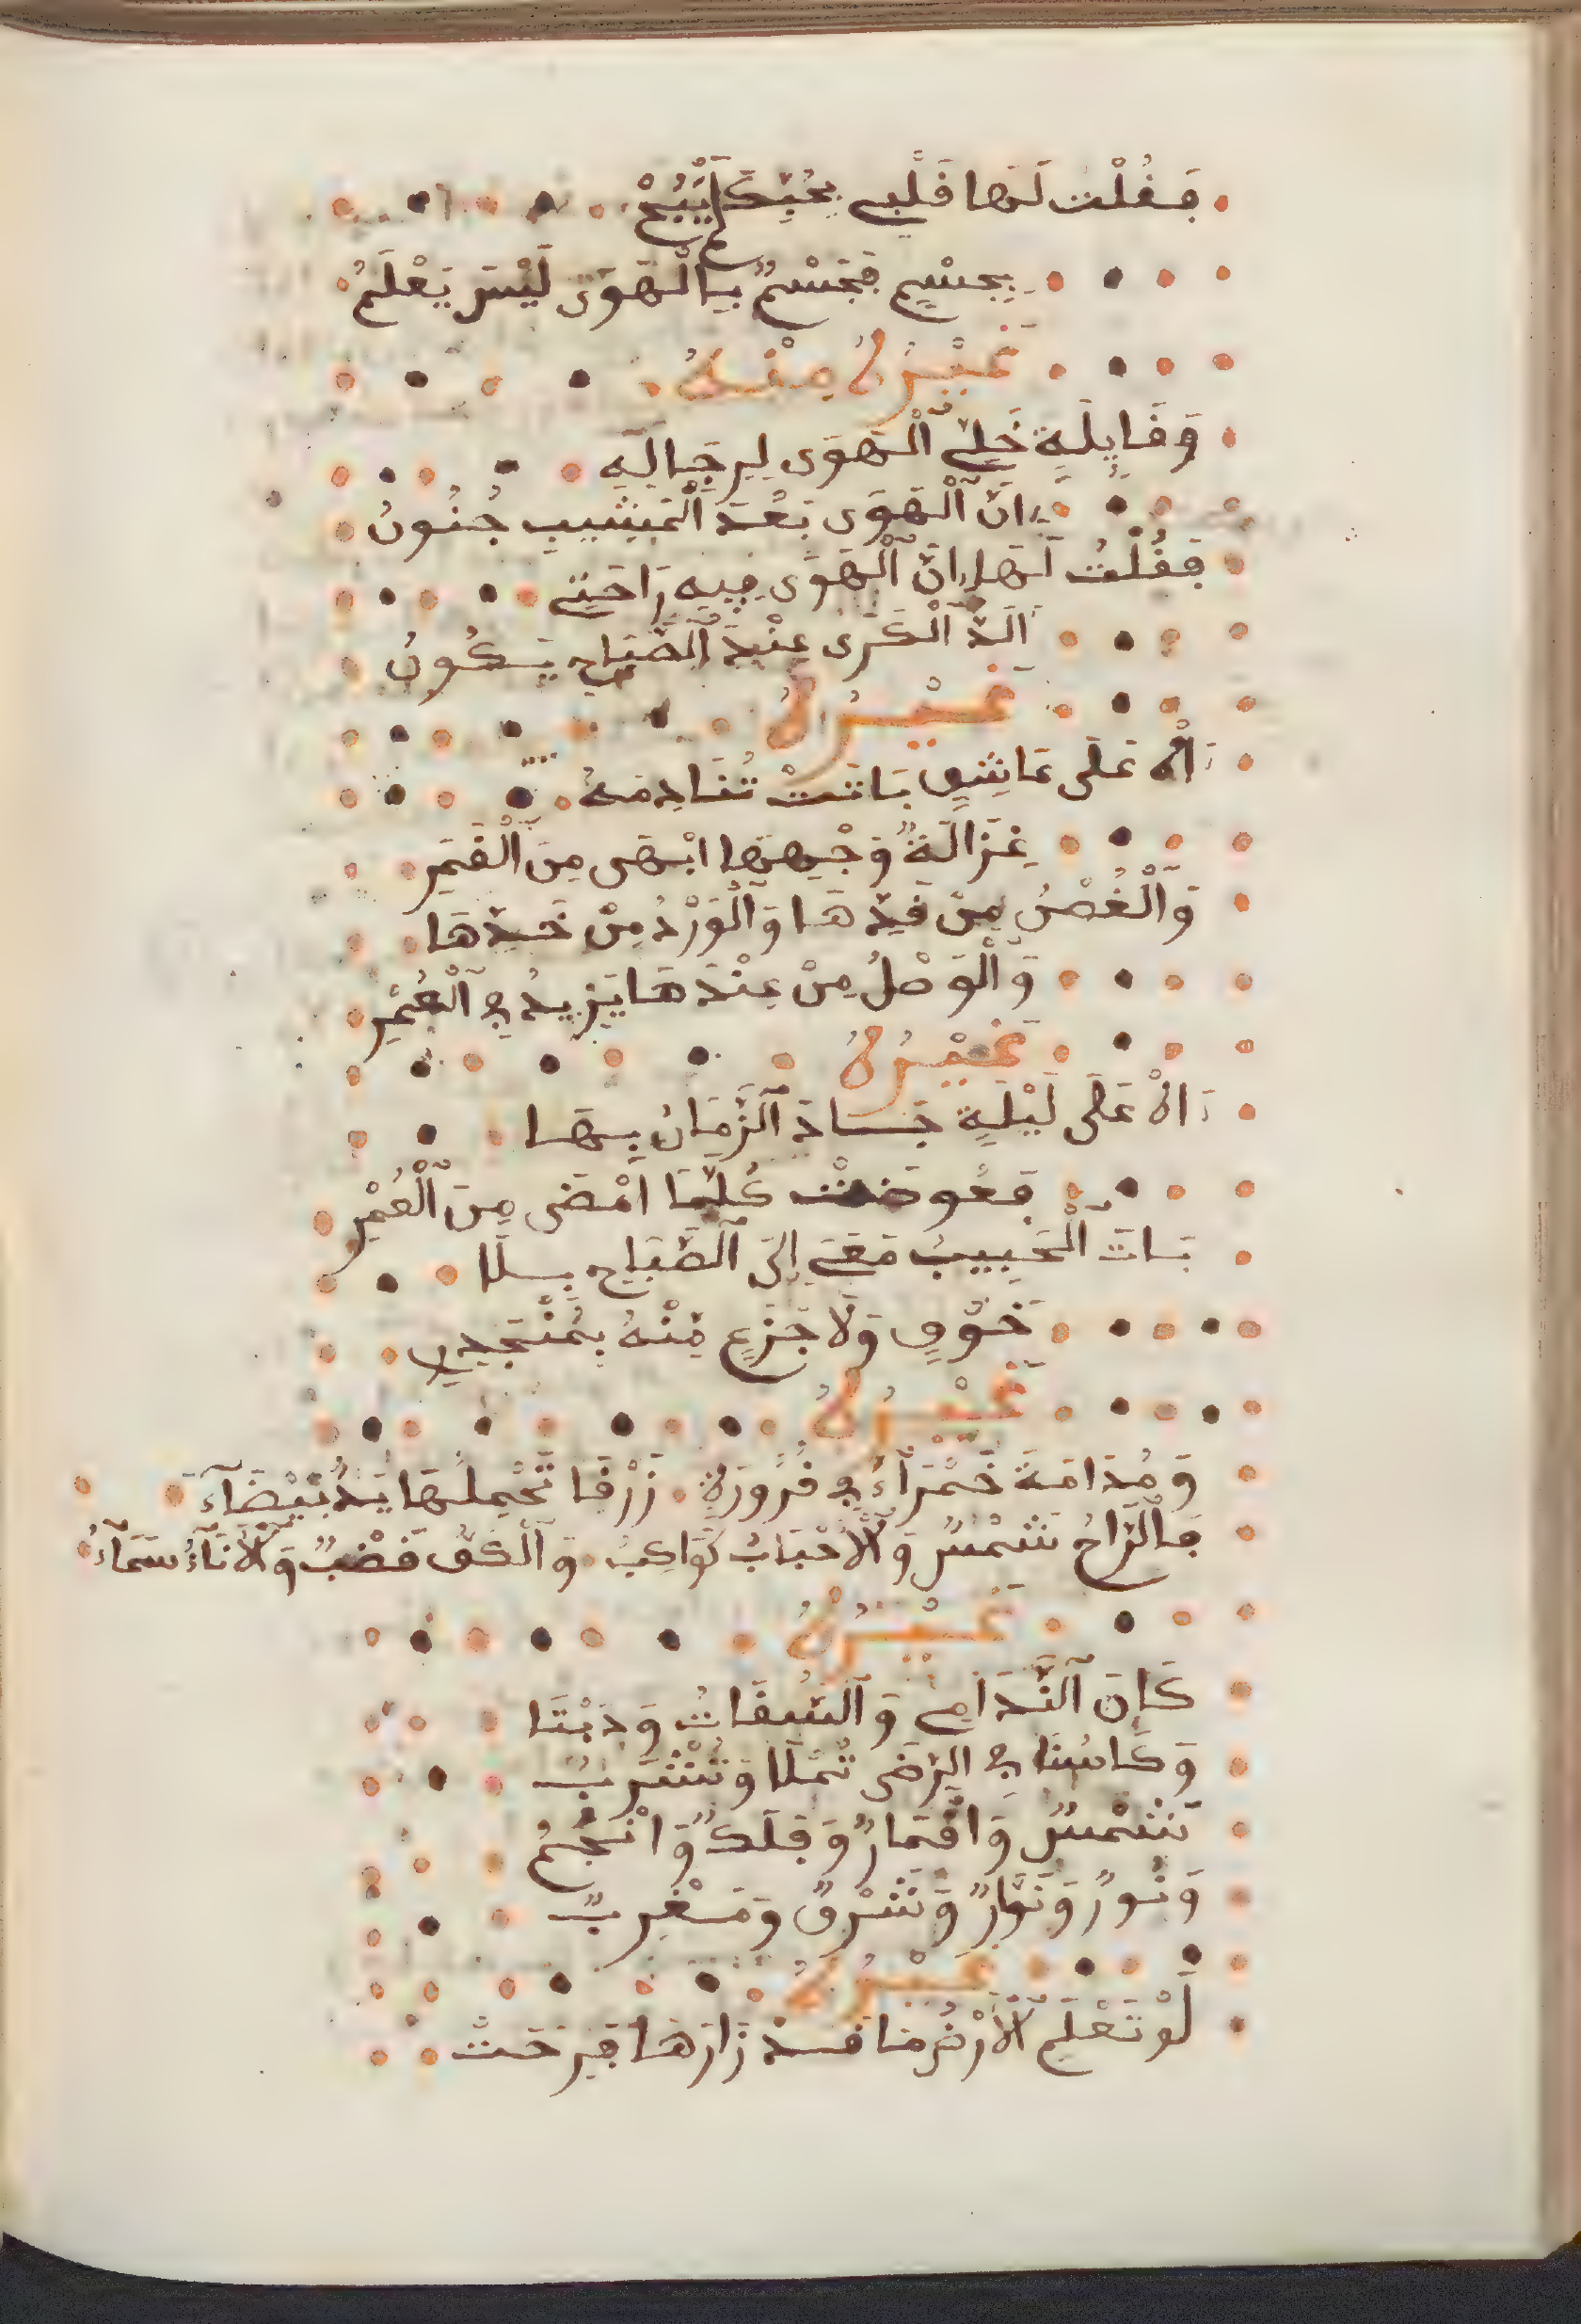 فَقُلْت لَهَا قَلْبِي بِحُبِّكَ لَمْ يَبُحْ
بِجِسْمِي فَجِسْمٌ بِالْهَوَى لَيْسَ يَعْلَمُ
غَيْرُهُ مِنْهُ
وَقَايِلَةٍ خَلِّي الْهَوَى لِرِجَالِهِ
اِنَّ الْهَوَى بَعْدَ الْمَشِيبِ جُنُونُ
فَقُلْتُ لَهَا اِنَّ الْهَوَى فِيهِ رَاحَتِي
اَلَذُّ الْكَرَى عِنْدَ الصَّبَاحِ يَكُونُ
غَيْرُهُ
اهْ عَلَى عَاشِقٍ بَاتَتْ تُنَادِمهُ
غَزَالَةٌ وَجْهِهَا ابْهَى مِنَ الْقَمَرِ
وَالْغُصْنُ مِنْ قَدِّهَا وَالْوَرْدُ مِنْ خَدِّهَا
وَالْوَصْلُ مِنْ عِنْدَهَا يَزِيدُ فِي الْعُمْرِ
غَيْرُهُ
اهْ عَلَى لَيْلَةٍ جَادَ الزَّمَانُ بِهَا
فَعُوضَتْ كُلَّمَا امْضَى مِنَ الْعُمْرِ
بَاتَ الْحَبِيبُ مَعَي إِلَى الصَّبَاحِ بِلَا
خَوْفٍ وَلَا جَزَعٍ مِنْهُ بِمُنْحَدِرِ
غَيْرُهُ
وَمُدَامَةً خَمْرَاءُ فِي قُرُورَةٍ زَرْقَا تَحْمِلُهَا يَدٌ بَيْضَآءَ
فَالرَّاحُ شَمْسٌ وَالْاَحْبَابُ كَوَاكِبُ وَالْكَفُّ قَضْبٌ وَالْاِنَآءُ سَمَآءُ
غَيْرُهُ
كَاِنَ النَّدَامِي وَالسُّقَاتُ وَدَبْنَا
وَكَاسُنَا فِي الرَّضَى تُمْلَا وَتُشْرَبُ
شَمْسٌ وَاقْمَارٌ وَفَلَكٌ وَانْجُمُ
وَنُورٌ وَنَوَّارٌ وَشَرْقٌ وَمَغْرِبٌ
غَيْرُهُ
لَوْ تَعْلَمِ الْاَرْضُ مَا قَدْ زَارَهَا فَرِحَتْ